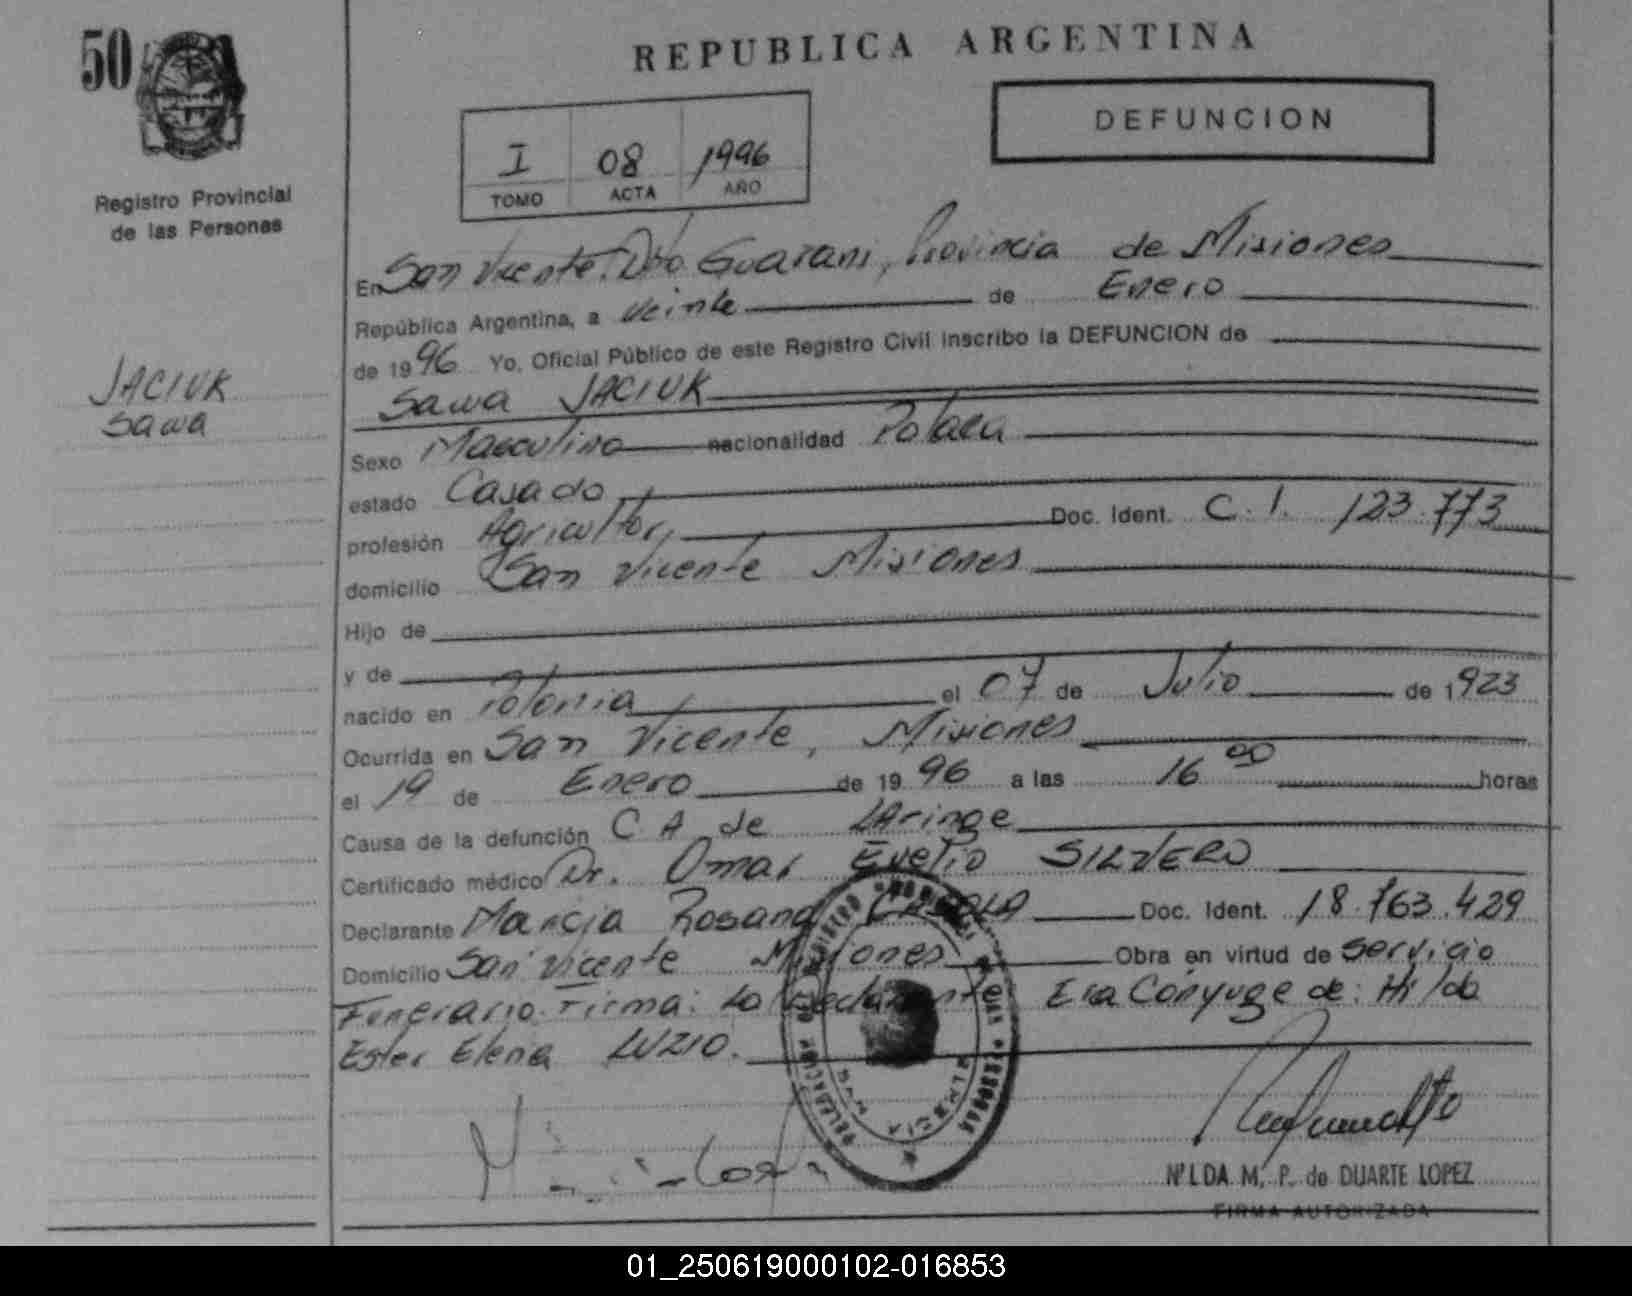 50
REPUBLICA ARGENTINA
DEFUNCION
I 08 1996
TOMO ACTA AÑO
Registro Provincial
de las Personas
JACIUK
Sawa
En San Vicente. Dto. Guarani, Provincia de Misiones
República Argentina, a veinte de Enero
de 1996 Yo, Oficial Público de este Registro Civil inscribo la DEFUNCION de
Sawa JACIUK
Sexo Masculino nacionalidad Polaca
estado Casado
profesión Agricultor, Doc. Ident. C.I. 123.773
domicilio San Vicente Misiones
Hijo de
y de
nacido en Polonia el 07 de Julio de 1923
Ocurrida en San Vicente, Misiones
el 19 de Enero de 1996 a las 16 00 horas
Causa de la defunción C.A de LAringe
Certificado médico Dr. Omar Evelio SILVERO
Declarante Marcia Rosana Doc. Ident. 18.763.429
Domicilio San Vicente Misiones Obra en virtud de Servicio
Funerario. Firma: La declarante Era Cónyuge de: Hilda
Ester Elena LUZIO.
Nª LDA M. P. de DUARTE LOPEZ
FIRMA AUTORIZADA
01_250619000102-016853